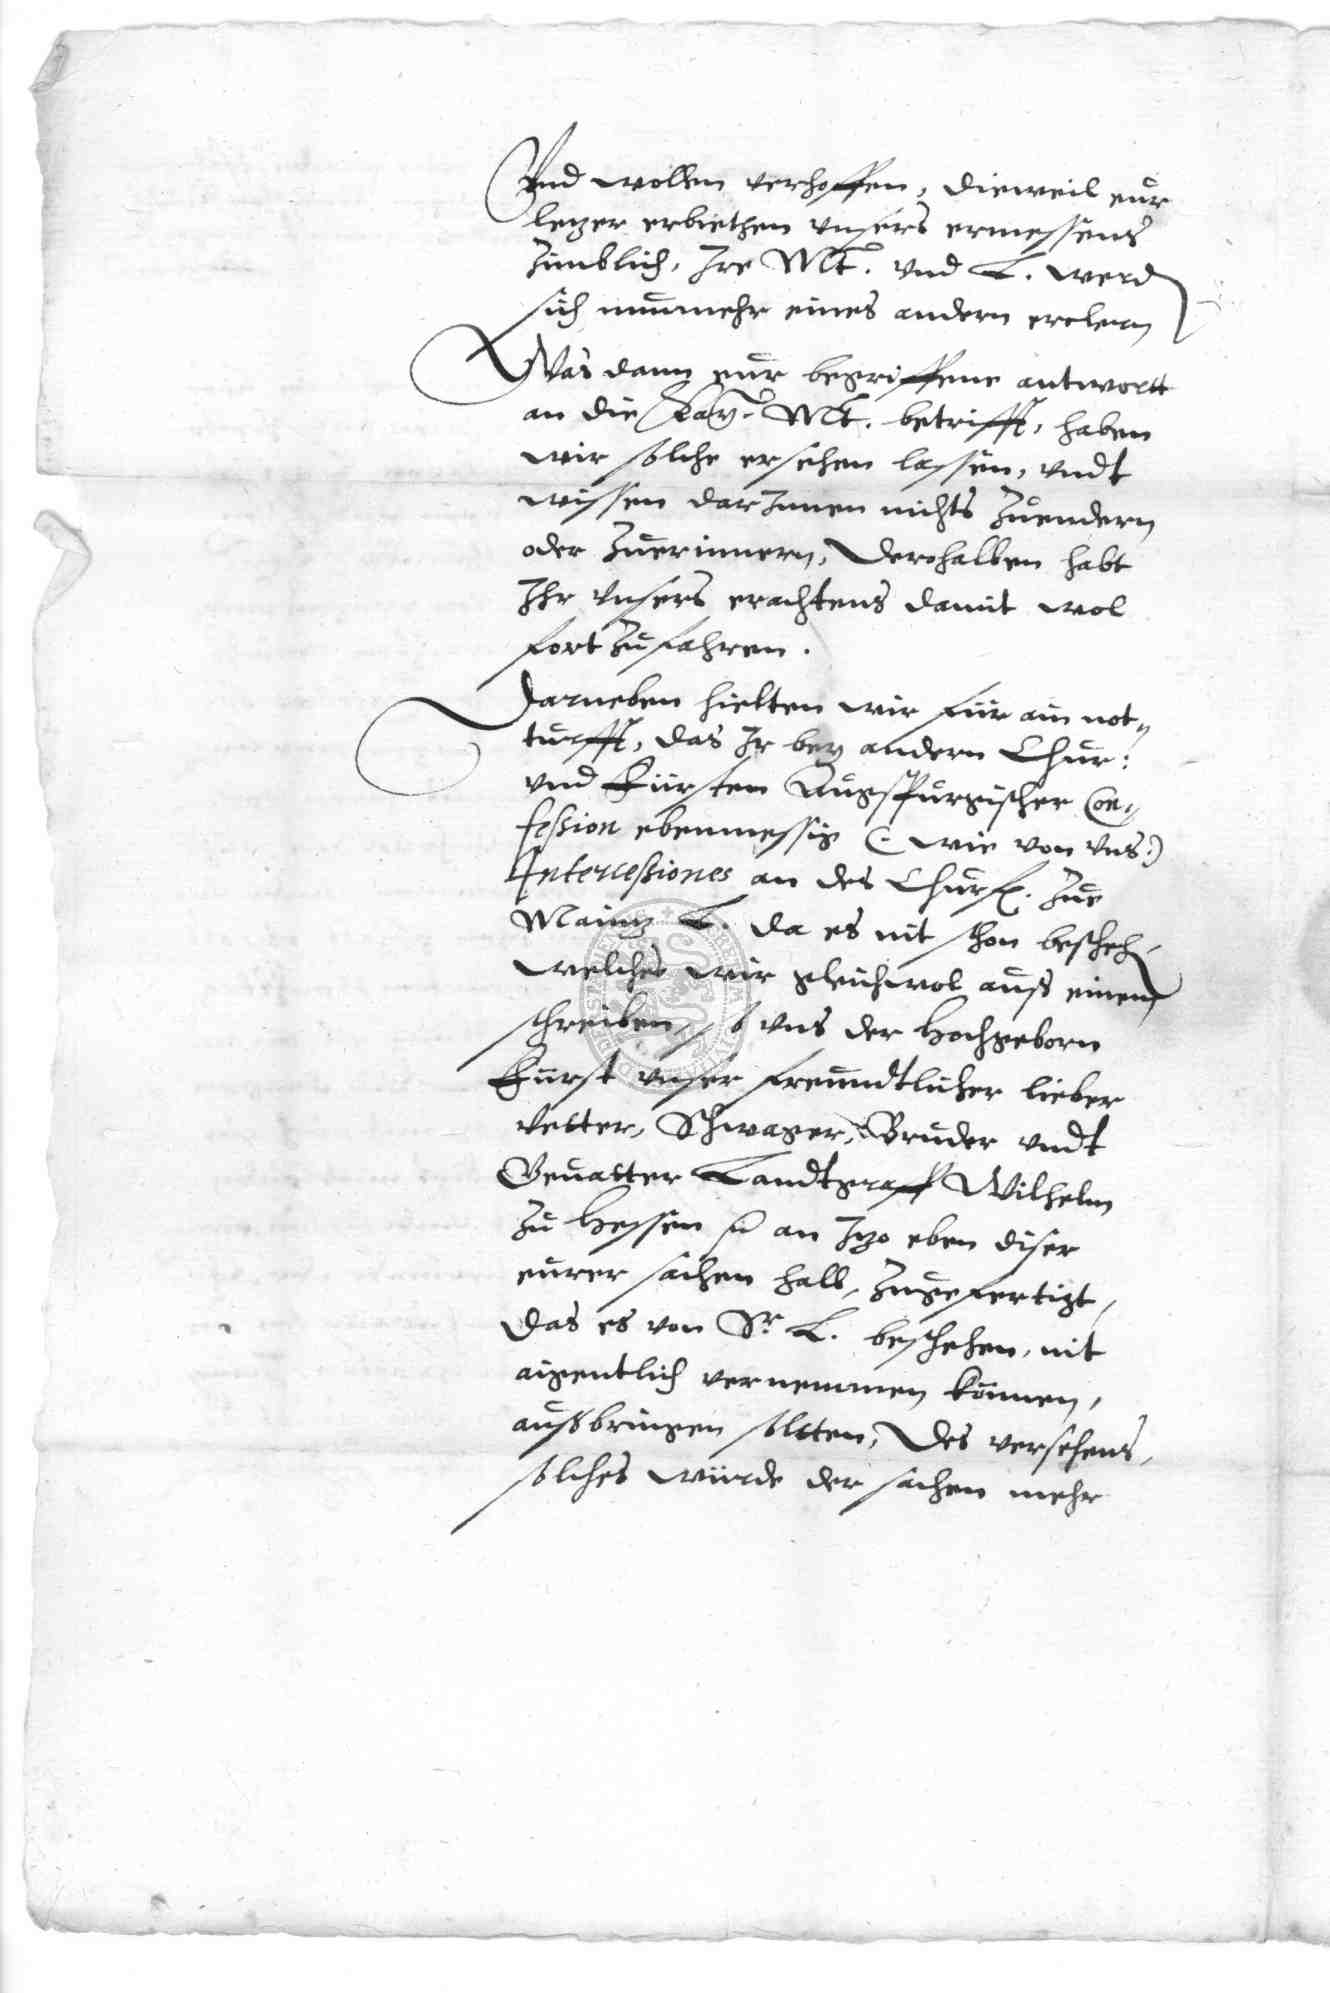 Vnd wollen verhoffen, dieweil eur
letzer erbiethen vnsers ermessens
zimblich, Ire Mt. vnd L. werd
sich nunmehr eines andern erclern
Was dann eur begriffene antwortt
an die Kay. Mt. betrifft, haben
wir solche ersehen lassen, vndt
wissen darInnen nichts zuendern
oder zuerinnern, Derohalben habt
Ihr vnsers erachtens damit wol
fort zufahren.
Darneben hielten wir für ain not-
turfft, das Ir bey andern Chur:
vnd Fürsten Augspurgischer Con-
fession ebenmessig (: wie von vns :)
Intercessiones an des Churf. zue
Maintz L. da es nit schon bescheh,
welches wir gleichwol auß einem
schreiben, so vns der Hochgeborn
Fürst vnser freundtlicher lieber
Vetter, Schwager, Bruder vndt
Gevatter Landtgraff Wilhelm
zu Hessen an Itzo eben diser
eurer sachen halb, zugefertigt,
das es von Sr. L. beschehen, nit
aigentlich vernemmen können,
außbringen soltten, Des versehens,
solches würde der sachen mehr